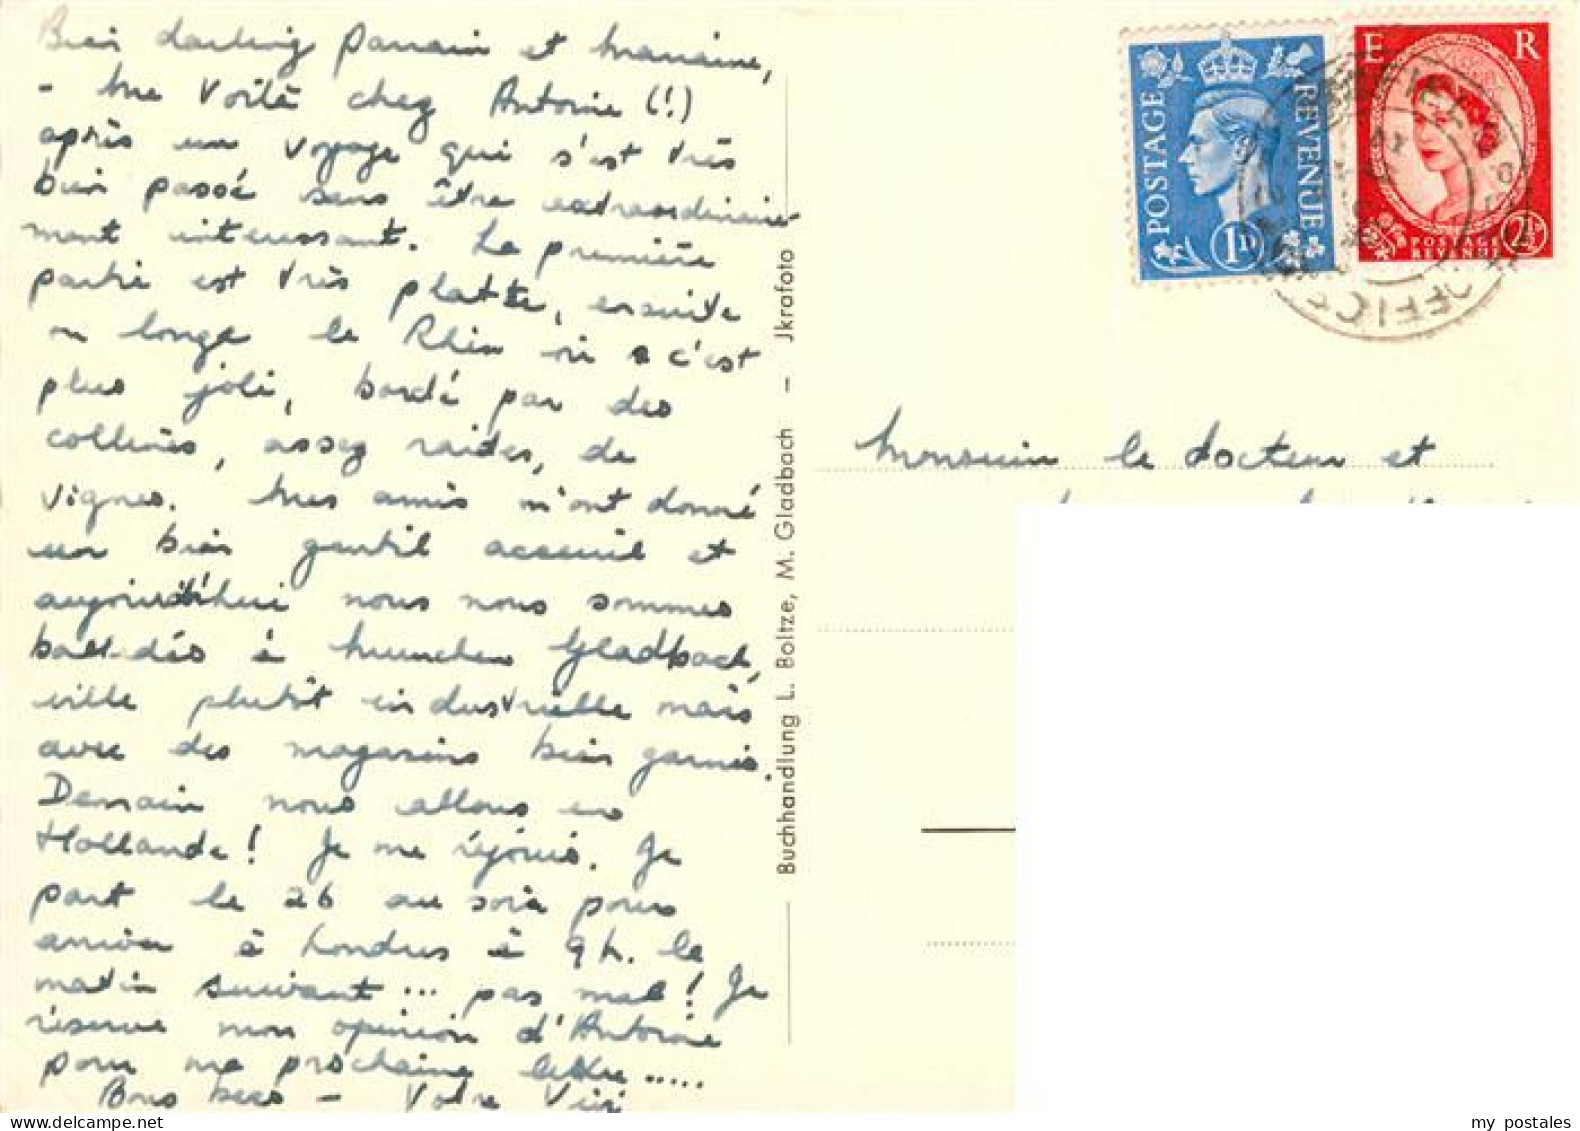 Bien darling Parrain et Marraine,
- Me voilà chez Antoine (!)
après un voyage qui s'est très
bien passé sans être extraordinaire
ment intéressant. La première
partie est très platte, ensuite
on longe le Rhin où c'est
plus joli, bordé par des
collines, assez raides, de
vignes. Mes amis m'ont donné
un bien gentil acceuil et
aujourd'hui nous nous sommes
balladés à Munchen Gladbach,
ville plutôt industrielle mais
avec des magasins bien garnis.
Demain nous allons en
Hollande! Je me réjouis. Je
part le 26 au soir pour
arriver à Londres à 9 h. le
matin suivant ... pas mal! Je
réserve mon opinion d'Antoine
pour ma prochaine lettre .....
Bons becs - Votre
Buchhandlung L. Boltze, M. Gladbach - Jkrafoto
POSTAGE REVENUE
1D
E R
POSTAGE
REVENUE
2½D
FIELD POST OFFICE
Monsieur le docteur et
my postales